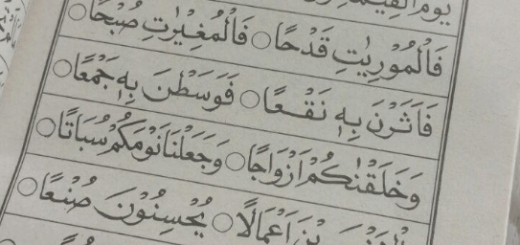 يَوْمَ الْقِيٰمَةِ
فَالْمُوْرِيٰتِ قَدْحًا ○ فَالْمُغِيْرٰتِ صُبْحًا ○
فَاَثَرْنَ بِهٖ نَقْعًا ○ فَوَسَطْنَ بِهٖ جَمْعًا ○
وَخَلَقْنٰكُمْ اَزْوَاجًا ○ وَجَعَلْنَا نَوْمَكُمْ سُبَاتًا ○
اَعْمَالًا ○ يُحْسِنُوْنَ صُنْعًا ○